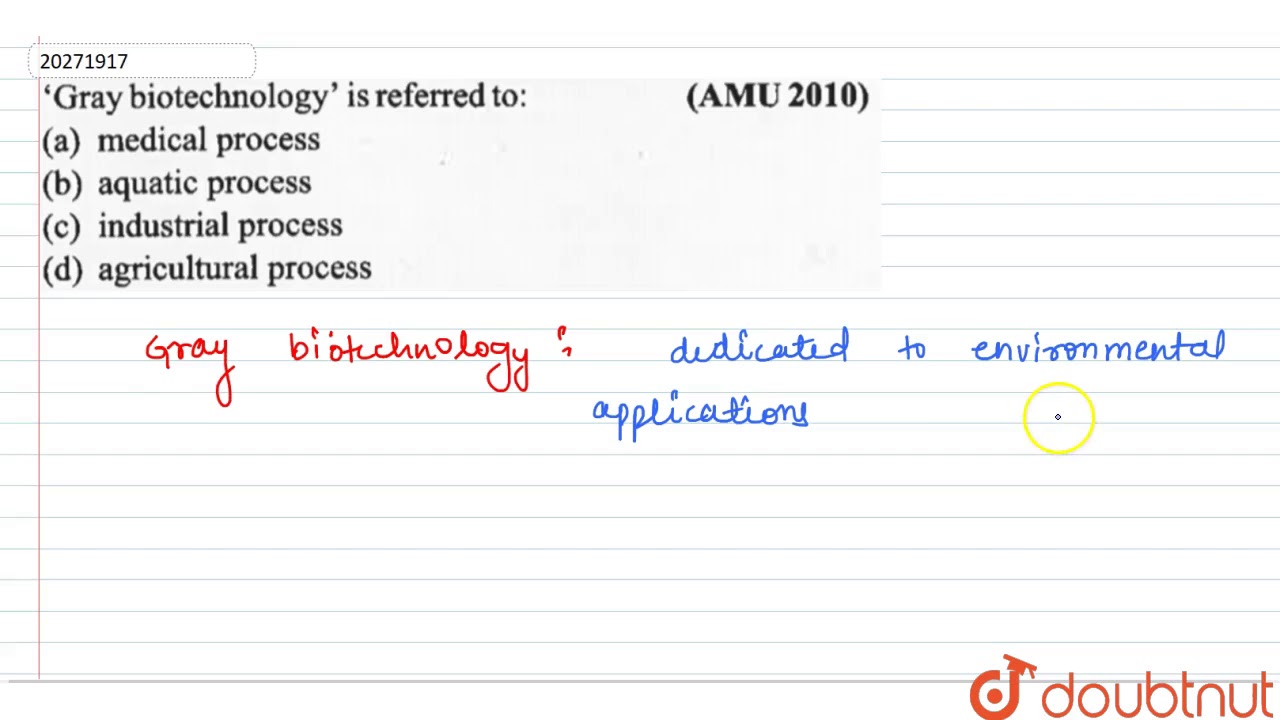 20271917
‘Gray biotechnology’ is referred to: (AMU 2010)
(a) medical process
(b) aquatic process
(c) industrial process
(d) agricultural process
Gray biotechnology : dedicated to environmental
applications
doubtnut